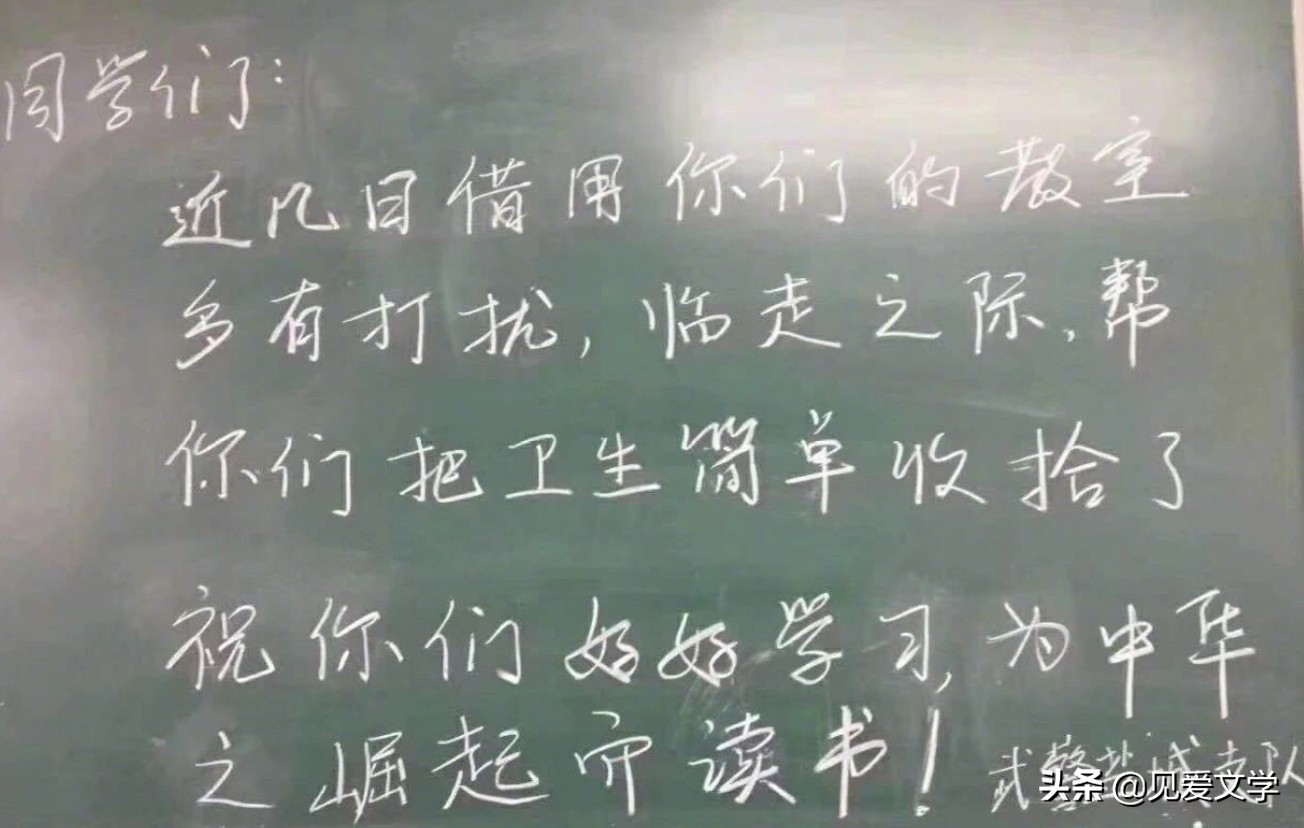 同学们：
近几日借用你们的教室
多有打扰，临走之际，帮
你们把卫生简单收拾了
祝你们好好学习，为中华
之崛起而读书！
武警盐城支队
头条 @见爱文学